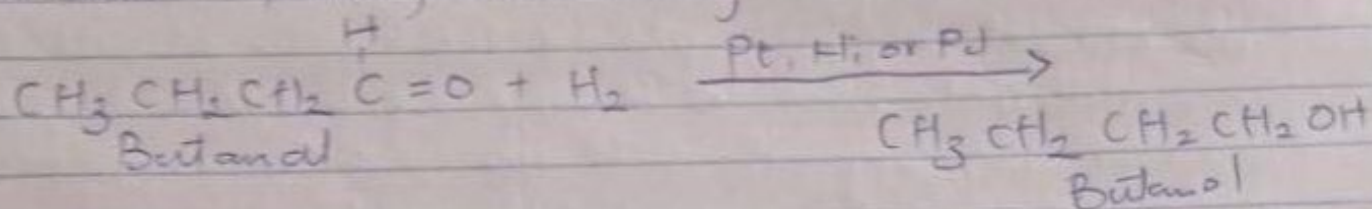 H
CH₃ CH₂ CH₂ C = O + H₂ Pt, Ni, or Pd
Butanal
CH₃ CH₂ CH₂ CH₂ OH
Butanol